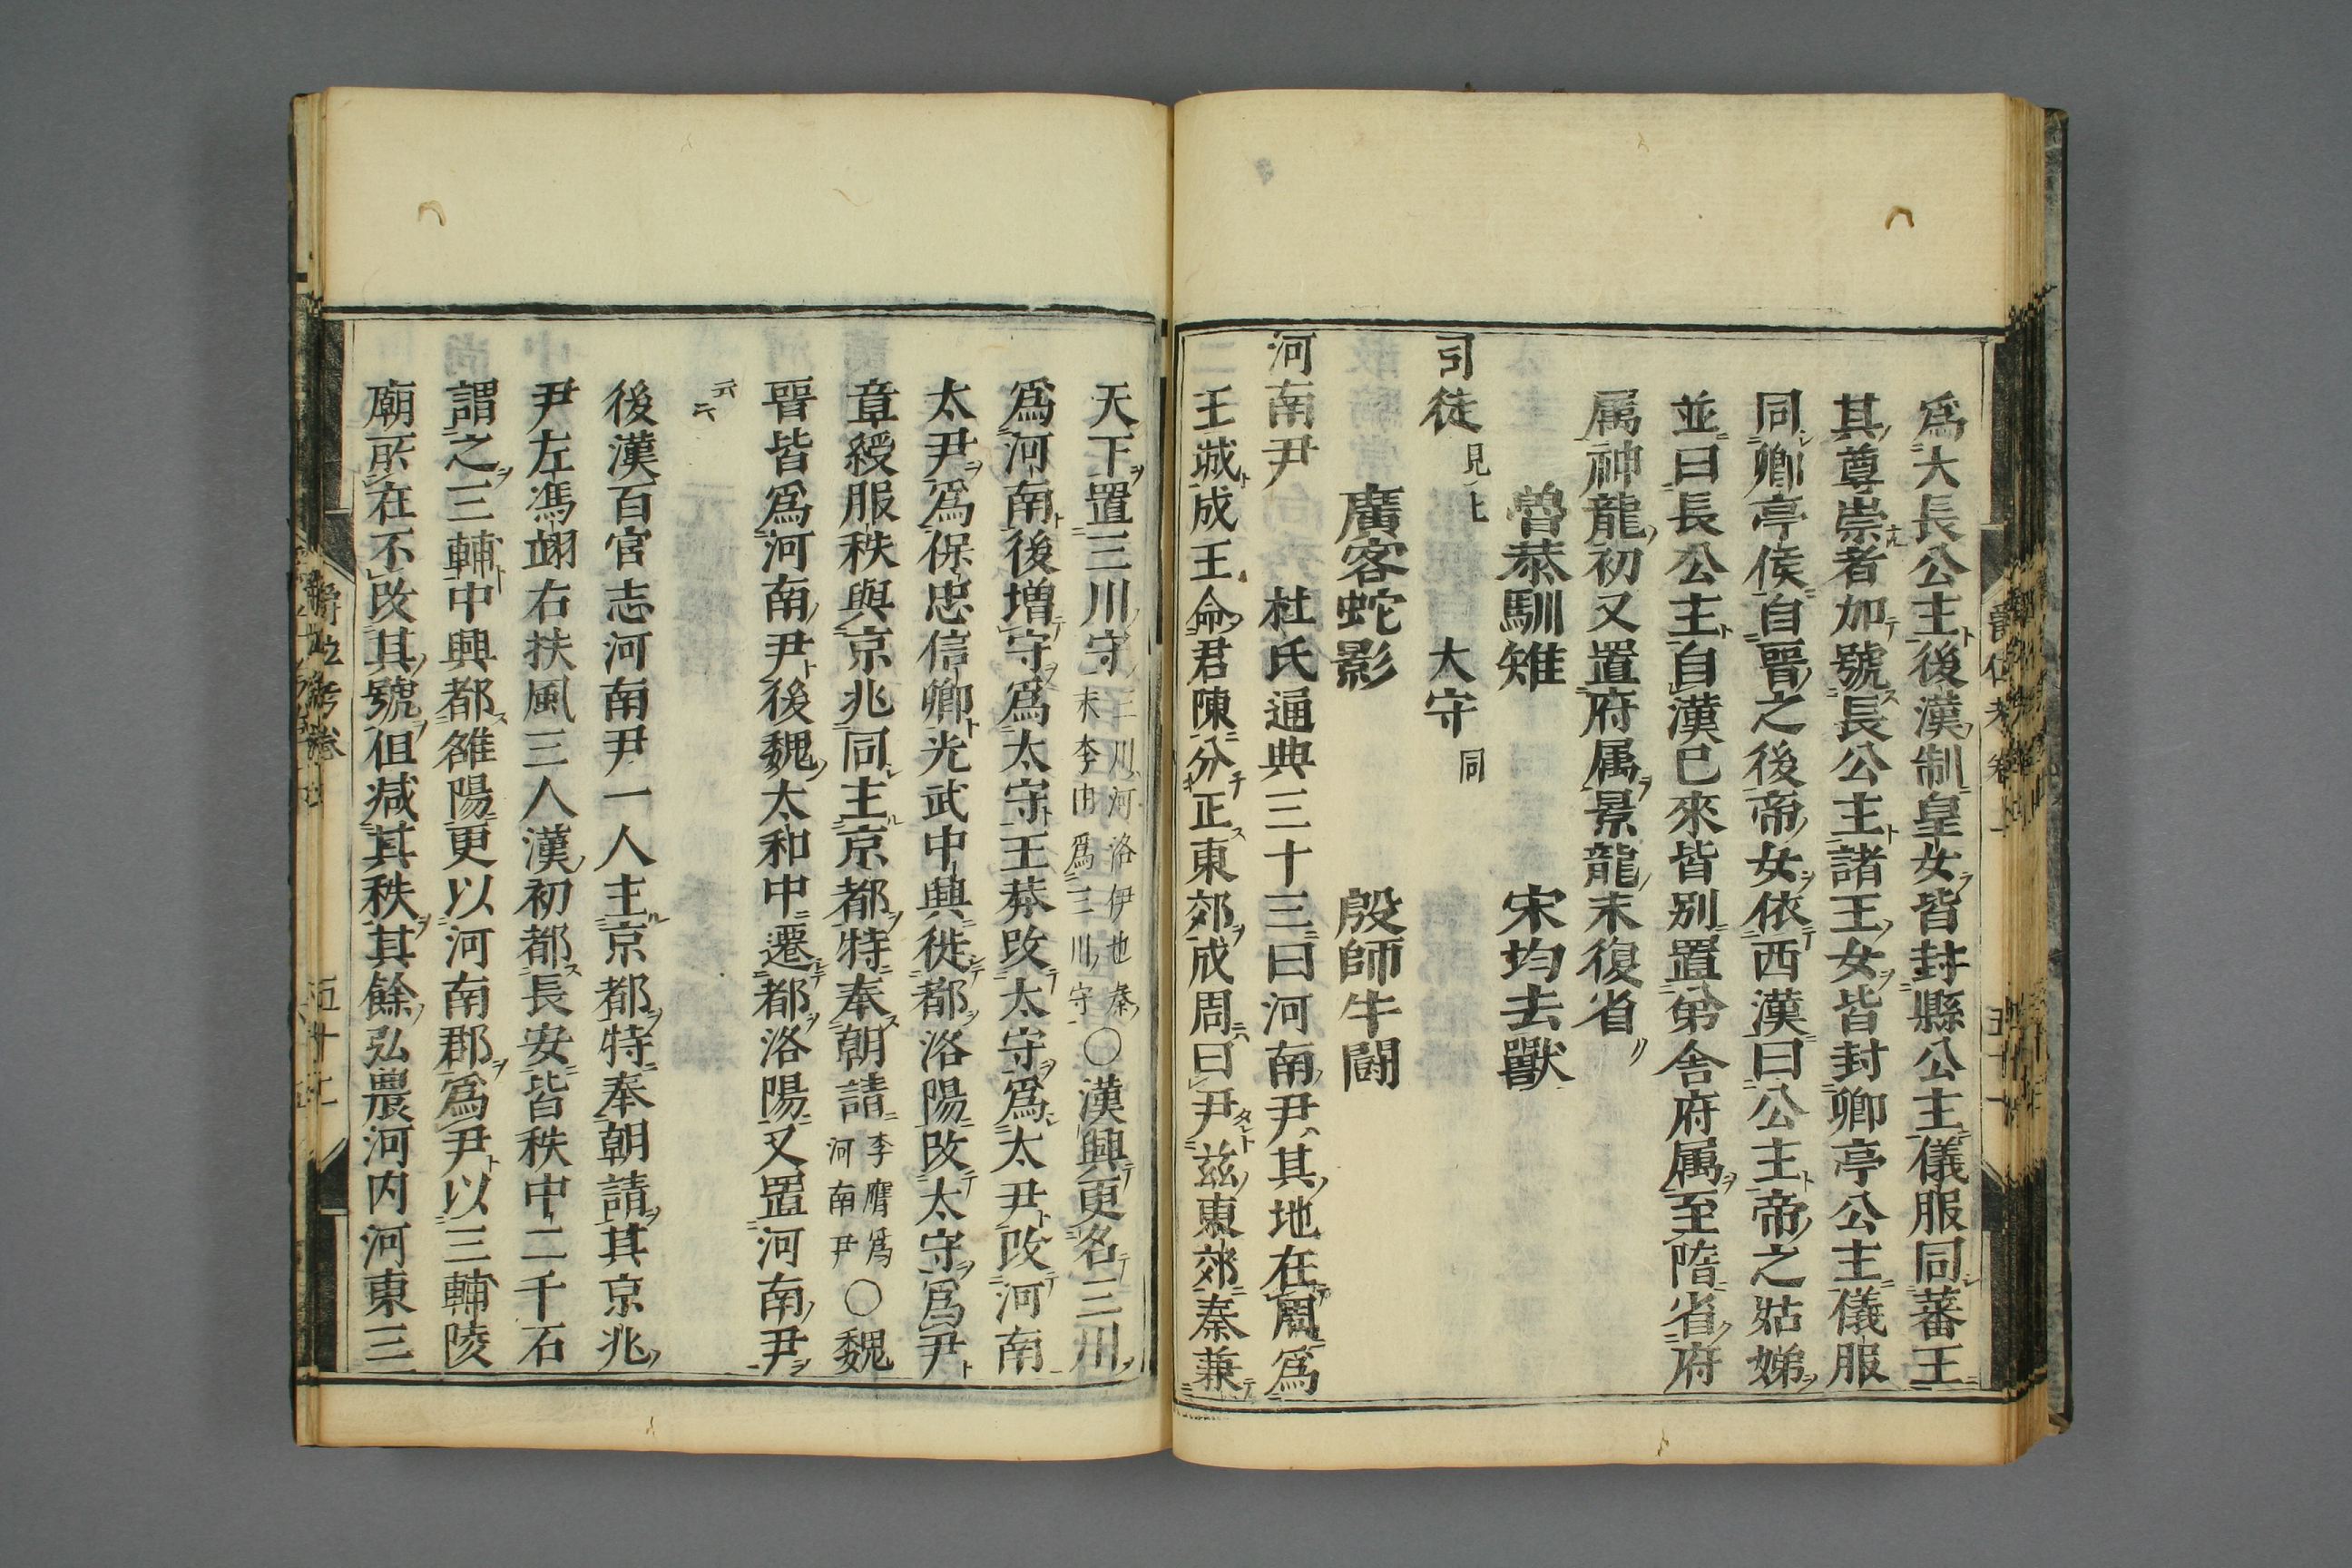 爲大長公主後漢制皇女皆封縣公主儀服同蕃王
其尊崇者加號長公主諸王女皆封郷亭公主儀服
同郷亭侯自晋之後帝女依西漢曰公主帝之姑娣
並曰長公主自漢已來皆別置第舎府属至隋省府
属神龍初又置府属景龍末復省
曽恭馴雉　宋均去獸
引徒見上　大守同
廣客蛇影　殷師牛闘
河南尹　杜氏通典三十三曰河南尹其地在周爲
王城成王命君陳分正東郊成周曰尹茲東郊秦兼
天下置三川守三川河洛伊也秦末李由爲三川守〇漢興更名三川
爲河南後增守爲太守王莽改太守爲太尹改河南
太尹爲保忠信卿光武中興徙都洛陽改太守爲尹
章綬服秩與京兆同主京都特奉朝請李膺爲河南尹〇魏
晋皆爲河南尹後魏太和中遷都洛陽又置河南尹
後漢百官志河南尹一人主京都特奉朝請其京兆
尹左馮翊右扶風三人漢初都長安皆秩中二千石
謂之三輔中興都雒陽更以河南郡爲尹以三輔陵
廟所在不改其號但减其秩其餘弘農河内河東三